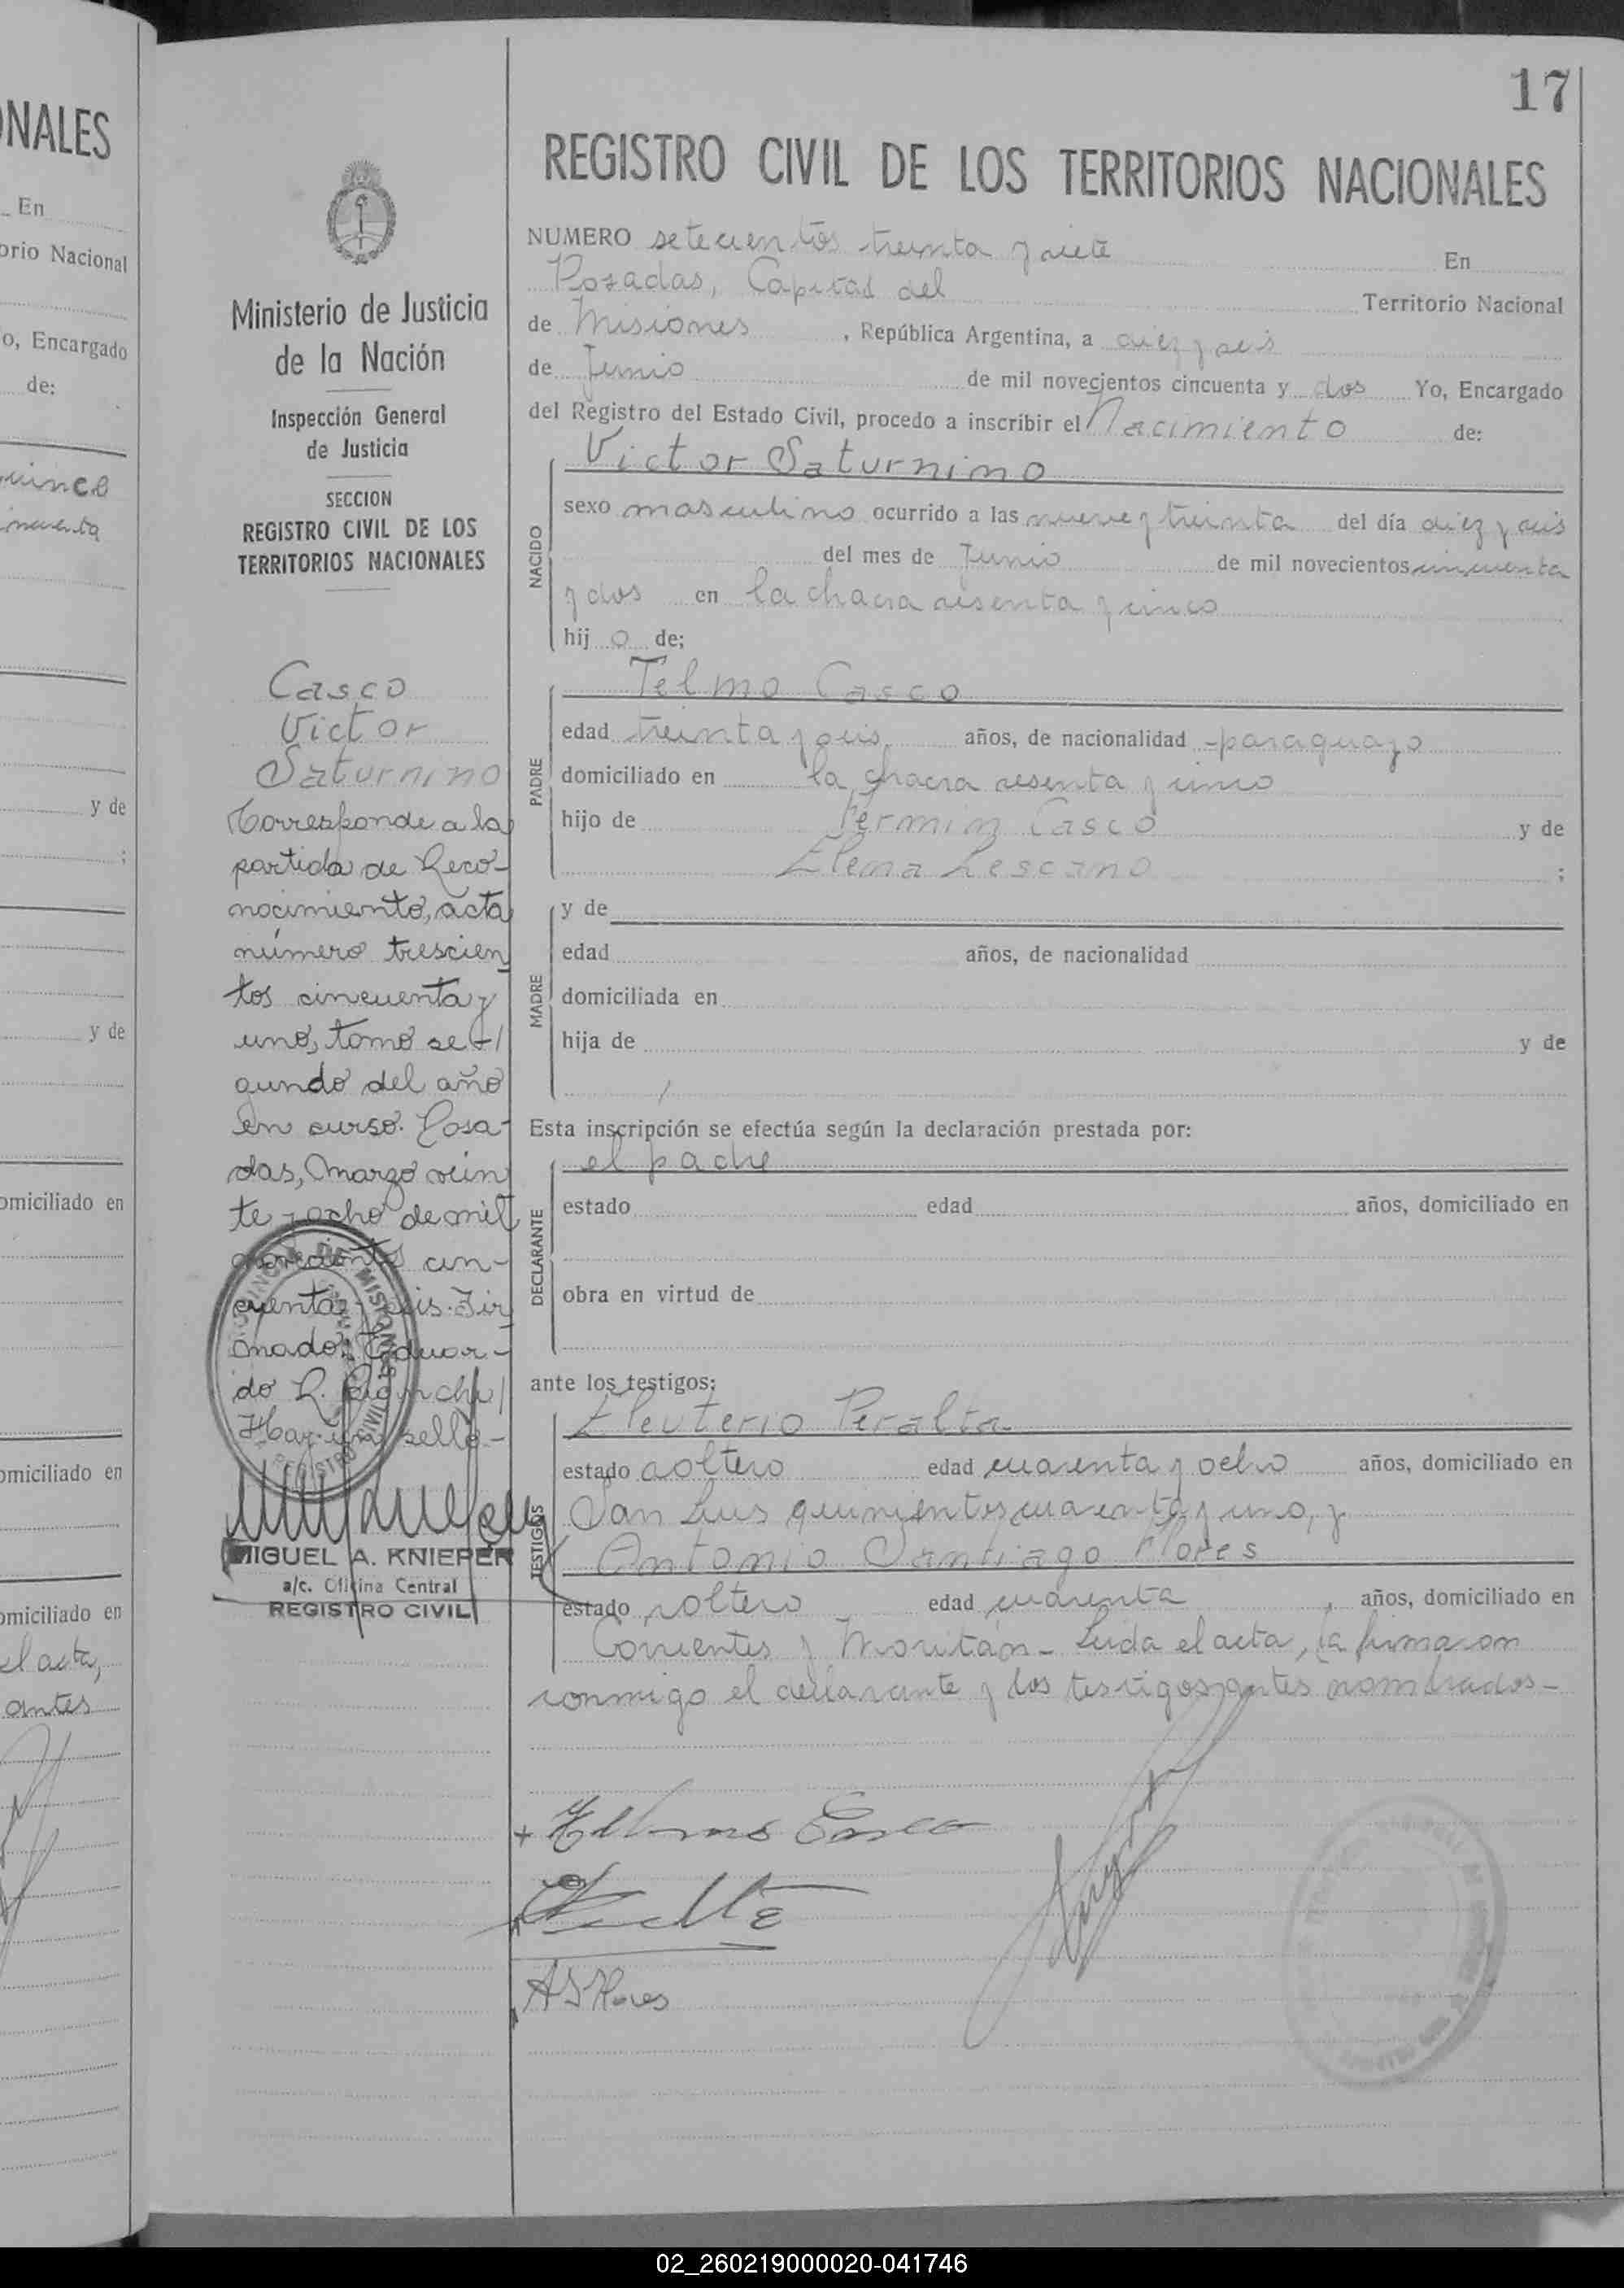 NALES
En
orio Nacional
o, Encargado
de:
uince
y de
y de
omiciliado en
omiciliado en
omiciliado en
el acta,
antes
17
Ministerio de Justicia
de la Nación
Inspección General
de Justicia
SECCION
REGISTRO CIVIL DE LOS
TERRITORIOS NACIONALES
Casco
Victor
Saturnino
Corresponde a la
partida de Reco-
nocimiento, acta
número trescien
tos cincuenta y
uno, tomo se-
gundo del año
en curso. Posa-
das, Marzo vein
te y ocho de mil
novecientos cin-
cuenta y seis. Fir
mado: Eduar-
do R. Bianchi
Hay un sello-
PROVINCIA DE MISIONES
REGISTRO CIVIL
MIGUEL A. KNIEPER
a/c. Oficina Central
REGISTRO CIVIL
REGISTRO CIVIL DE LOS TERRITORIOS NACIONALES
NUMERO setecientos treinta y siete En
Posadas, Capital del Territorio Nacional
de Misiones, República Argentina, a diez y seis
de Junio de mil novecientos cincuenta y dos Yo, Encargado
del Registro del Estado Civil, procedo a inscribir el Nacimiento de:
Victor Saturnino
NACIDO
sexo masculino ocurrido a las nueve y treinta del día diez y seis
del mes de Junio de mil novecientos cincuenta
y dos en la chacra sesenta y cinco
hij o de;
Telmo Casco
PADRE
edad treinta y seis años, de nacionalidad paraguayo
domiciliado en la chacra sesenta y cinco
hijo de Fermin Casco y de
Elena Lescano ;
MADRE
y de
edad años, de nacionalidad
domiciliada en
hija de y de
Esta inscripción se efectúa según la declaración prestada por:
el padre
DECLARANTE
estado edad años, domiciliado en
obra en virtud de
ante los testigos:
Eleuterio Peralta
TESTIGOS
estado soltero edad cuarenta y ocho años, domiciliado en
San Luis quinientos cuarenta y uno, y
Antonio Santiago Flores
estado soltero edad cuarenta, años, domiciliado en
Corrientes y Moritán- Leida el acta, la firmaron
conmigo el declarante y los testigos antes nombrados-
Telmo Casco
A S Flores
02_260219000020-041746